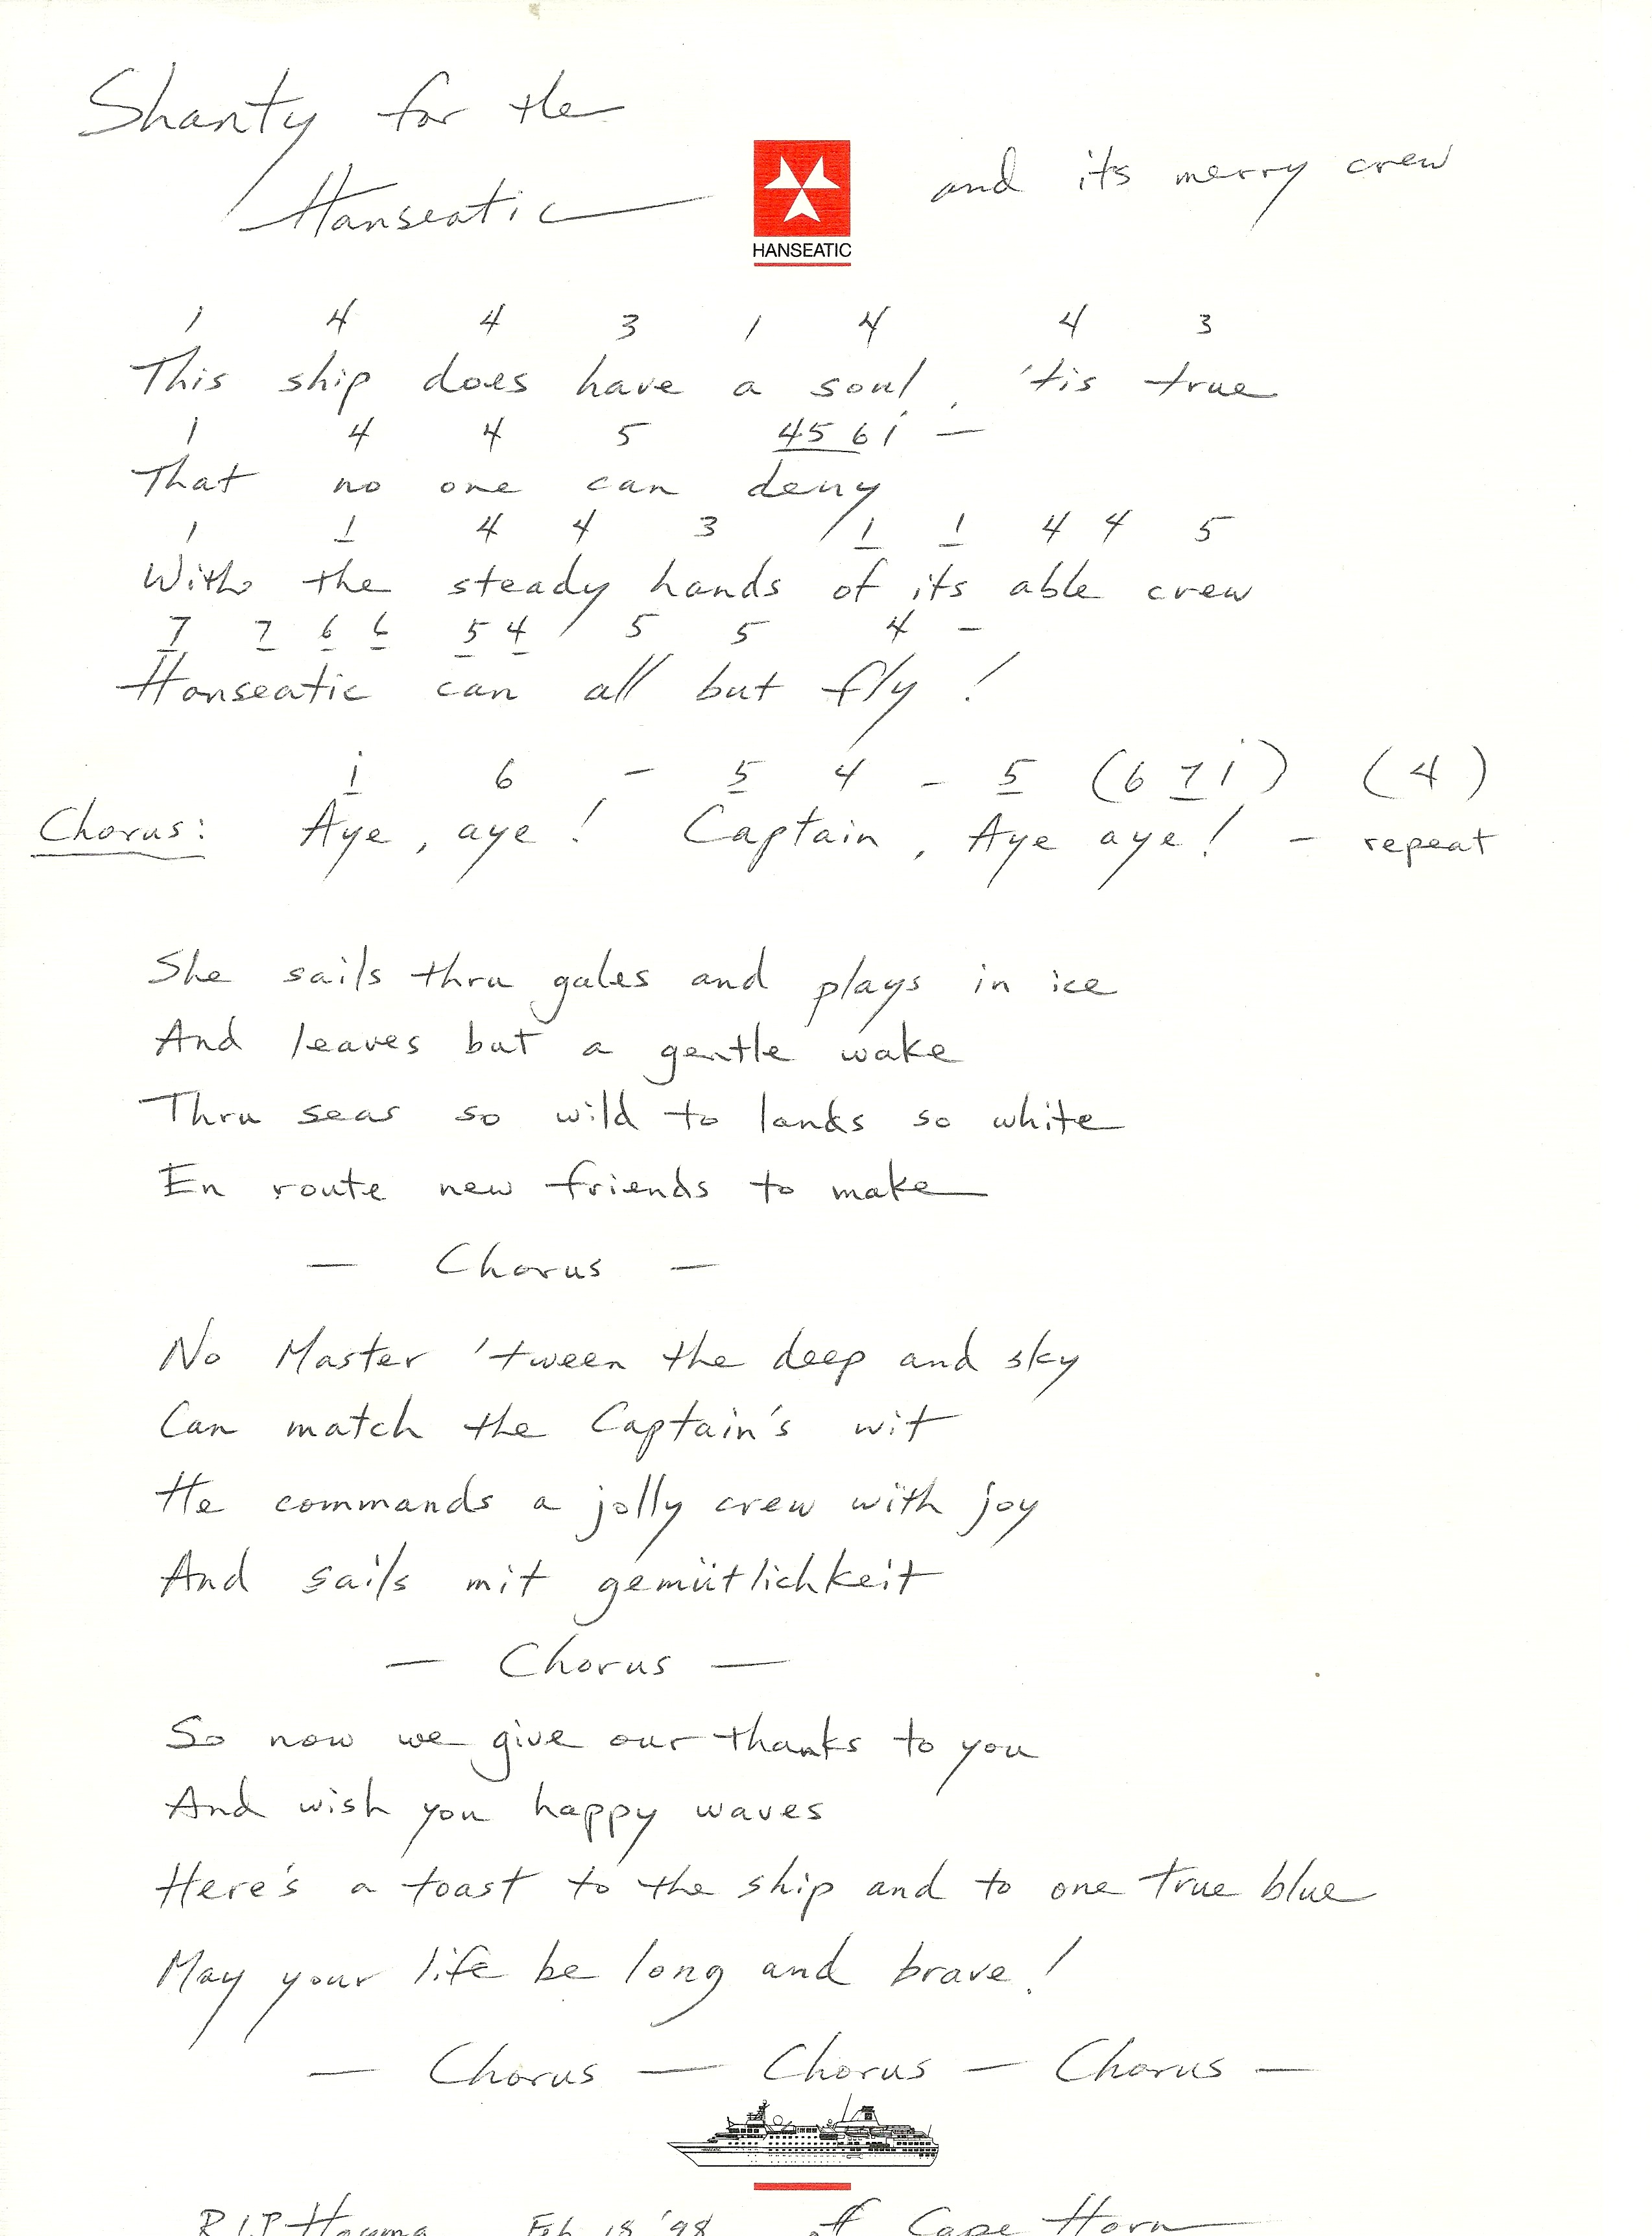 Shanty for the
Hanseatic and its merry crew
HANSEATIC
1 4 4 3 1 4 4 3
This ship does have a soul, 'tis true
1 4 4 5 4 5 6 i –
That no one can deny
1 1 4 4 3 / 1 1 4 4 5
With the steady hands of its able crew
7 7 6 6 5 4 / 5 5 4 –
Hanseatic can all but fly!
i 6 – 5 4 – 5 (6 7 i) (4)
Chorus: Aye, aye! Captain, Aye aye! – repeat
She sails thru gales and plays in ice
And leaves but a gentle wake
Thru seas so wild to lands so white
En route new friends to make
— Chorus —
No Master 'tween the deep and sky
Can match the Captain's wit
He commands a jolly crew with joy
And sails mit gemütlichkeit
— Chorus —
So now we give our thanks to you
And wish you happy waves
Here's a toast to the ship and to one true blue
May your life be long and brave!
— Chorus — Chorus — Chorus —
Feb 18 '98 off Cape Horn